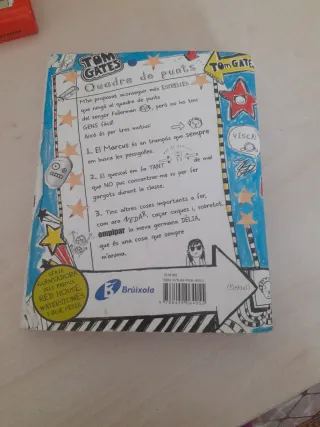 TOM GATES
TOM GATES
Quadre de punts
M'he proposat aconseguir més ESTRELLES
que ningú al quadre de punts
del senyor Fullerman, però no ho tinc
GENS fàcil
Això és per tres motius:
1. El Marcus és un tranquis que sempre
em busca les pessigolles.
2. El queixal em fa TANT de mal
que NO puc concentrar-me ni per fer
gargots durant la classe.
3. Tinc altres coses importants a fer,
com ara AJUDAR, caçar cuques i, sobretot,
empipar la meva germana DÈLIA,
que és una cosa que sempre
m'anima.
VISCA!
SÈRIE
GUANYADORA
DELS PREMIS
RED HOUSE,
WATERSTONES
I BLUE PETER
Brúixola